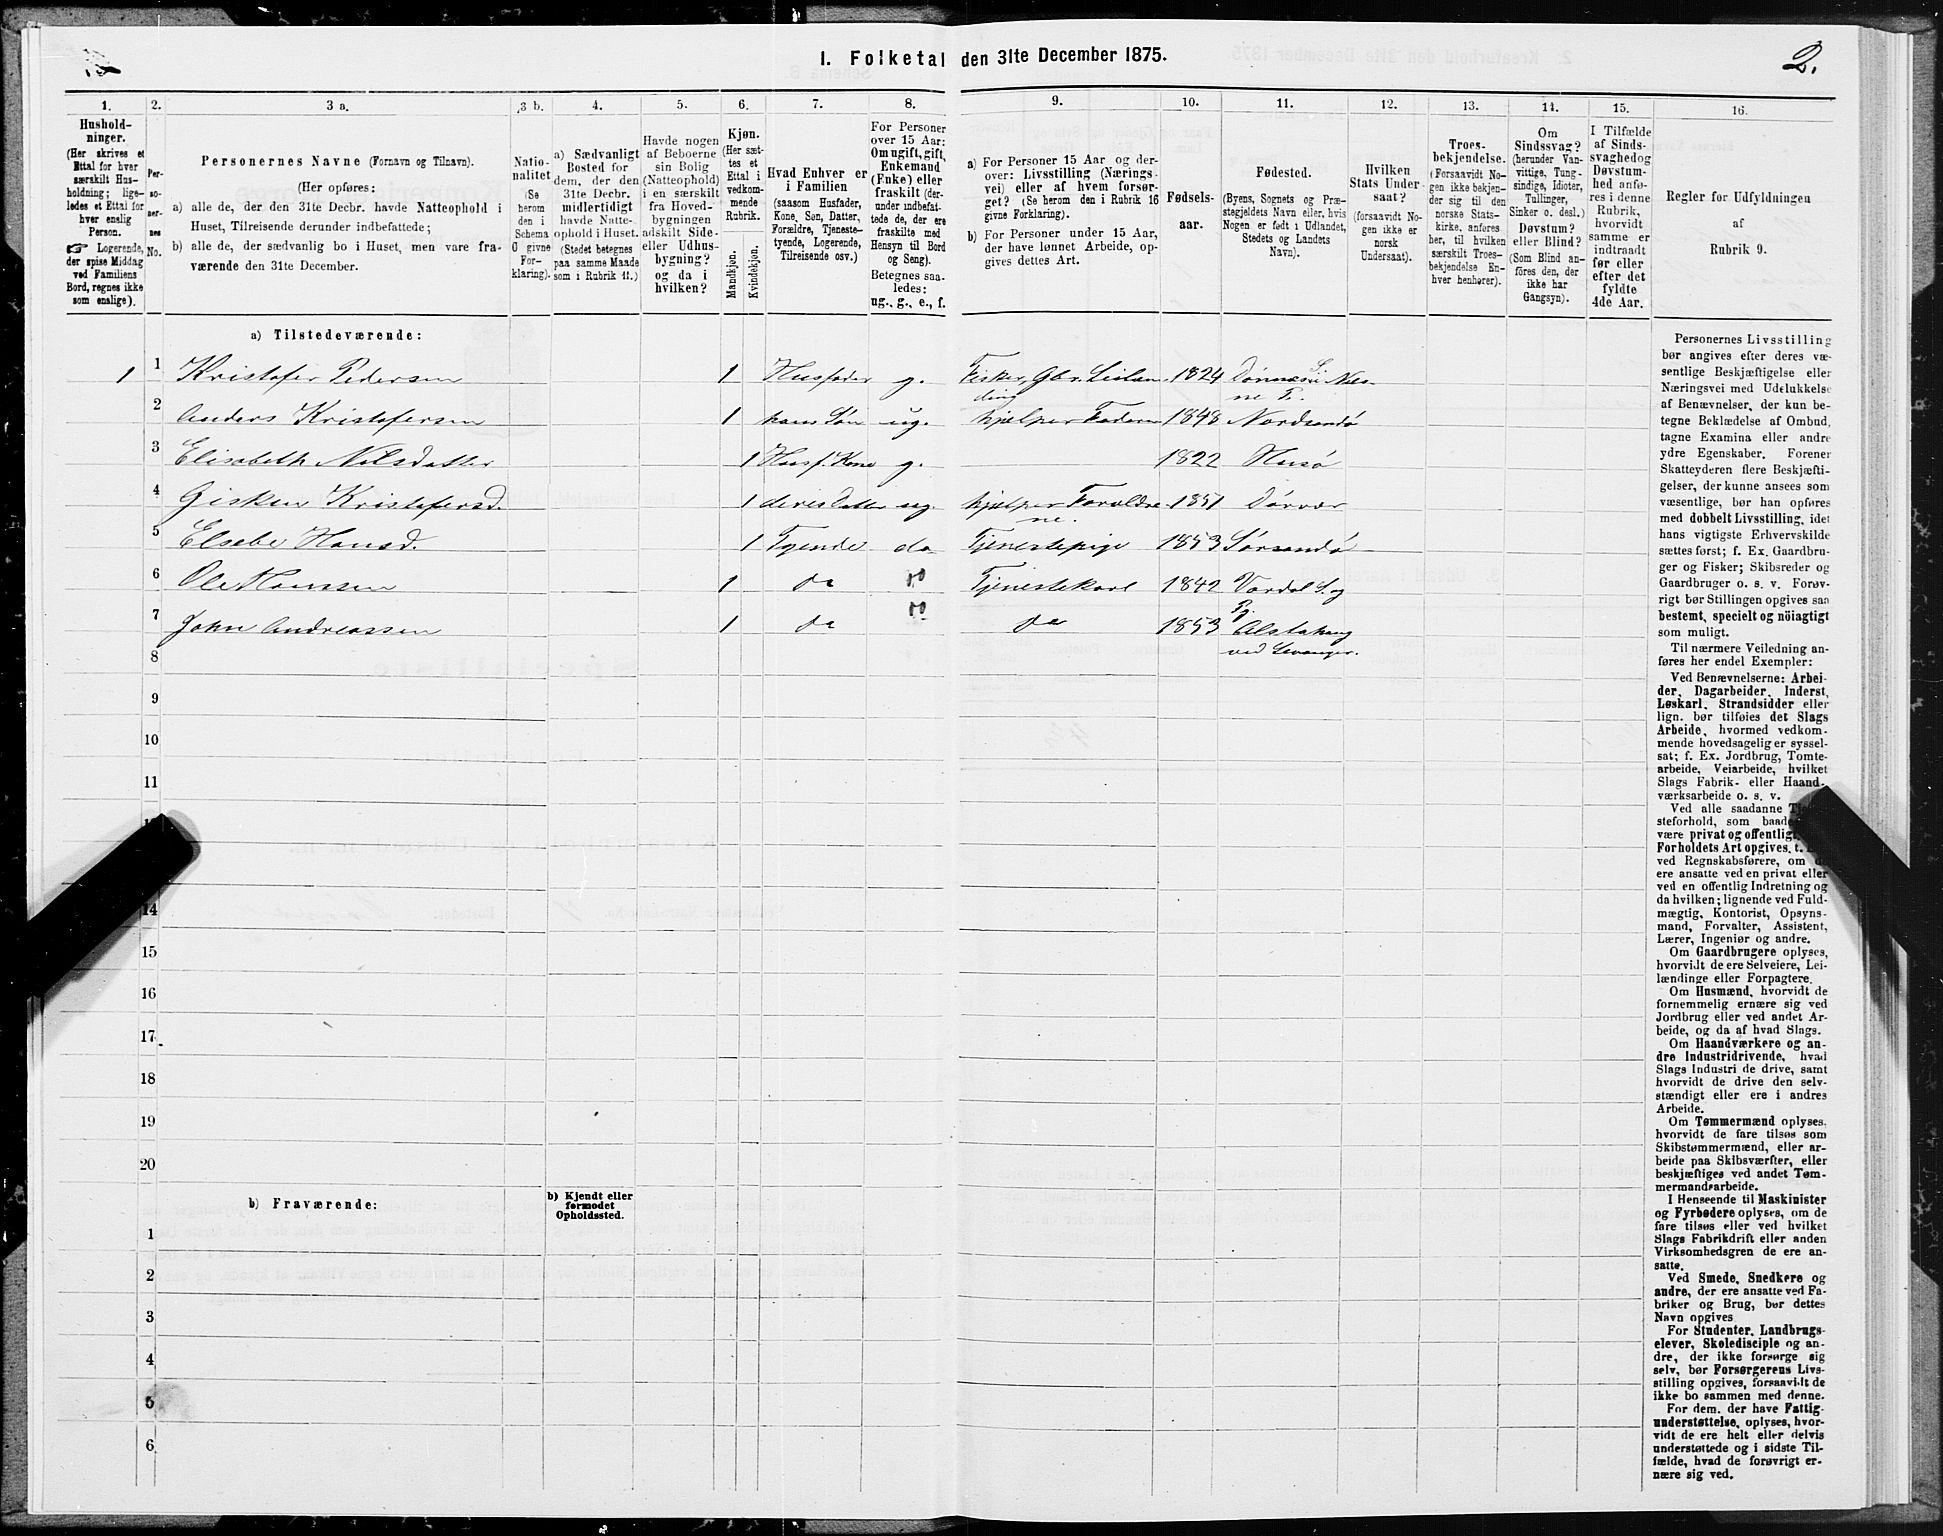 1. Folketal den 31te December 1875.
2.
1.
2.
3 a.
3 b.
4.
5.
6.
7.
8.
9.
10.
11.
12.
13.
14.
15.
16.
Hushold-
ninger.
(Her skrives et
Ettal for hver
særskilt Hus-
holdning; lige-
ledes et Ettal for
hver enslig
Person.
☞ Logerende,
der spise Middag
ved Familiens
Bord, regnes ikke
som enslige).
Per-
so-
ner-
nes
No.
Personernes Navne (Fornavn og Tilnavn).
(Her opføres:
a) alle de, der den 31te Decbr. havde Natteophold i
Huset, Tilreisende derunder indbefattede;
b) alle de, der sædvanlig bo i Huset, men vare fra-
værende den 31te December.
Natio-
nalitet
(Se
herom
den i
Schema
O givne
For-
klaring).
a) Sædvanligt
Bosted for
dem, der den
31te Decbr.
midlertidigt
havde Natte-
ophold i Huset.
(Stedet betegnes
paa samme Maade
som i Rubrik 11.)
Havde nogen
af Beboerne
sin Bolig
(Natteophold)
i en særskilt
fra Hoved-
bygningen
adskilt Side-
eller Udhus-
bygning?
og da i
hvilken?
Kjøn.
(Her sæt-
tes et
Ettal i
vedkom-
mende
Rubrik.
Mandkjøn.
Kvindekjøn.
Hvad Enhver er
i Familien
(saasom Husfader,
Kone, Søn, Datter,
Forældre, Tjeneste-
tyende, Logerende,
Tilreisende osv.)
For Personer
over 15 Aar:
Om ugift, gift,
Enkemand
(Enke) eller
fraskilt (der-
under indbefat-
tede de, der ere
fraskilte med
Hensyn til Bord
og Seng).
Betegnes saa-
ledes:
ug., g., e., f.
a) For Personer 15 Aar og der-
over: Livsstilling (Nærings-
vei) eller af hvem forsør-
get? (Se herom den i Rubrik 16
givne Forklaring).
b) For Personer under 15 Aar,
der have lønnet Arbeide, op-
gives dettes Art.
Fødsels-
aar.
Fødested.
(Byens, Sognets og Præ-
stegjeldets Navn eller, hvis
Nogen er født i Udlandet,
Stedets og Landets
Navn).
Hvilken
Stats Under-
saat?
(forsaavidt No-
gen ikke er
norsk
Undersaat).
Troes-
bekjendelse.
(Forsaavidt No-
gen ikke bekjen-
der sig til den
norske Stats-
kirke, anføres
her, til hvilken
særskilt Troes-
bekjendelse En-
hver henhører).
Om
Sindssvag?
(herunder Van-
vittige, Tung-
sindige, Idioter,
Tullinger,
Sinker o. desl.)
Døvstum?
eller Blind?
(Som Blind an-
føres den, der
ikke har
Gangsyn).
I Tilfælde
af Sinds-
svaghed og
Døvstum-
hed anfø-
res i denne
Rubrik,
hvorvidt
samme er
indtraadt
før eller
efter det
fyldte
4de Aar.
Regler for Udfyldningen
af
Rubrik 9.
a) Tilstedeværende:
1 1 Kristofer Pedersen 1 Husfader g. Fisker, Gbr. Leilæn- 1824 Dønnesø S. Næs-
ding ne P.
2 Anders Kristofersen 1 hans Søn ug. hjælper Faderen 1848 Nordsandø
3 Elisabeth Nilsdatter 1 Husf. Kone g. 1822 Husø
4 Gisken Kristofersd. 1 deres Datter ug. hjælper Forældre- 1851 Dørvær
ne.
5 Elsebe Hansd. 1 Tyende do Tjenestepige 1853 Sørsandø
6 Ole Hanssen 1 do do Tjenestekarl 1842 Værdal S. og
Pg.
7 John Andreassen 1 do do do 1853 Alstahaug
ved Levanger.
8
9
10
11
14
15
16
17
18
19
20
b) Fraværende:
b) Kjendt eller
formodet
Opholdssted.
1
2
3
4
5
6
Personernes Livsstilling
bør angives efter deres væ-
sentlige Beskjæftigelse eller
Næringsvei med Udelukkelse
af Benævnelser, der kun be-
tegne Beklædelse af Ombud,
tagne Examina eller andre
ydre Egenskaber. Forener
Skatteyderen flere Beskjæfti-
gelser, der kunne ansees som
væsentlige, bør han opføres
med dobbelt Livsstilling, idet
hans vigtigste Erhvervskilde
sættes først; f. Ex. Gaardbru-
ger og Fisker; Skibsreder og
Gaardbruger o. s. v. Forøv-
rigt bør Stillingen opgives saa
bestemt, specielt og nöiagtigt
som muligt.
Til nærmere Veiledning an-
føres her endel Exempler:
Ved Benævnelserne: Arbei-
der, Dagarbeider, Inderst,
Løskarl, Strandsidder eller
lign. bør tilføies det Slags
Arbeide, hvormed vedkom-
mende hovedsagelig er syssel-
sat; f. Ex. Jordbrug, Tomte-
arbeide, Veiarbeide, hvilket
Slags Fabrik- eller Haand-
værksarbeide o. s. v.
Ved alle saadanne
steforhold, som
være privat og offentligt
Forholdets Art opgives, t.
ved Regnskabsførere, om
ere ansatte ved en privat eller
ved en offentlig Indretning og
da hvilken; lignende ved Fuld-
mægtig, Kontorist, Opsyns-
mand, Forvalter, Assistent,
Lærer, Ingeniør og andre.
Om Gaardbrugere oplyses,
hvorvidt de ere Selveiere, Lei-
lændinge eller Forpagtere.
Om Husmænd, hvorvidt de
fornemmelig ernære sig ved
Jordbrug eller ved andet Ar-
beide, og da af hvad Slags.
Om Haandværkere og an-
dre Industridrivende, hvad
Slags Industri de drive, samt
hvorvidt de drive den selv-
stændigt eller ere i andres
Arbeide.
Om Tømmermænd oplyses,
hvorvidt de fare tilsøs som
Skibstømmermænd, eller ar-
beide paa Skibsværfter, eller
beskjæftiges ved andet Tøm-
mermandsarbeide.
I Henseende til Maskinister
og Fyrbødere oplyses, om de
fare tilsøs eller ved hvilket
Slags Fabrikdrift eller anden
Virksomhedsgren de ere an-
satte.
Ved Smede, Snedkere og
andre, der ere ansatte ved Fa-
briker og Brug, bør dettes
Navn opgives
For Studenter, Landbrugs-
elever, Skoledisciple og an-
dre, der ikke forsørge sig
selv, bør Forsørgerens Livs-
stilling opgives, forsaavidt de
ikke bo sammen med denne.
For dem, der have Fattig-
understøttelse, oplyses, hvor-
vidt de ere helt eller delvis
understøttede og i sidste Til-
fælde, hvad de forøvrigt er-
nære sig ved.